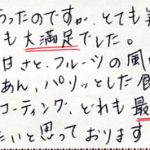 ったのですが、とても美
も大満足でした。
甘さと、フルーツの風
あん、パリッとした食
コーティング、どれも最
たいと思っております